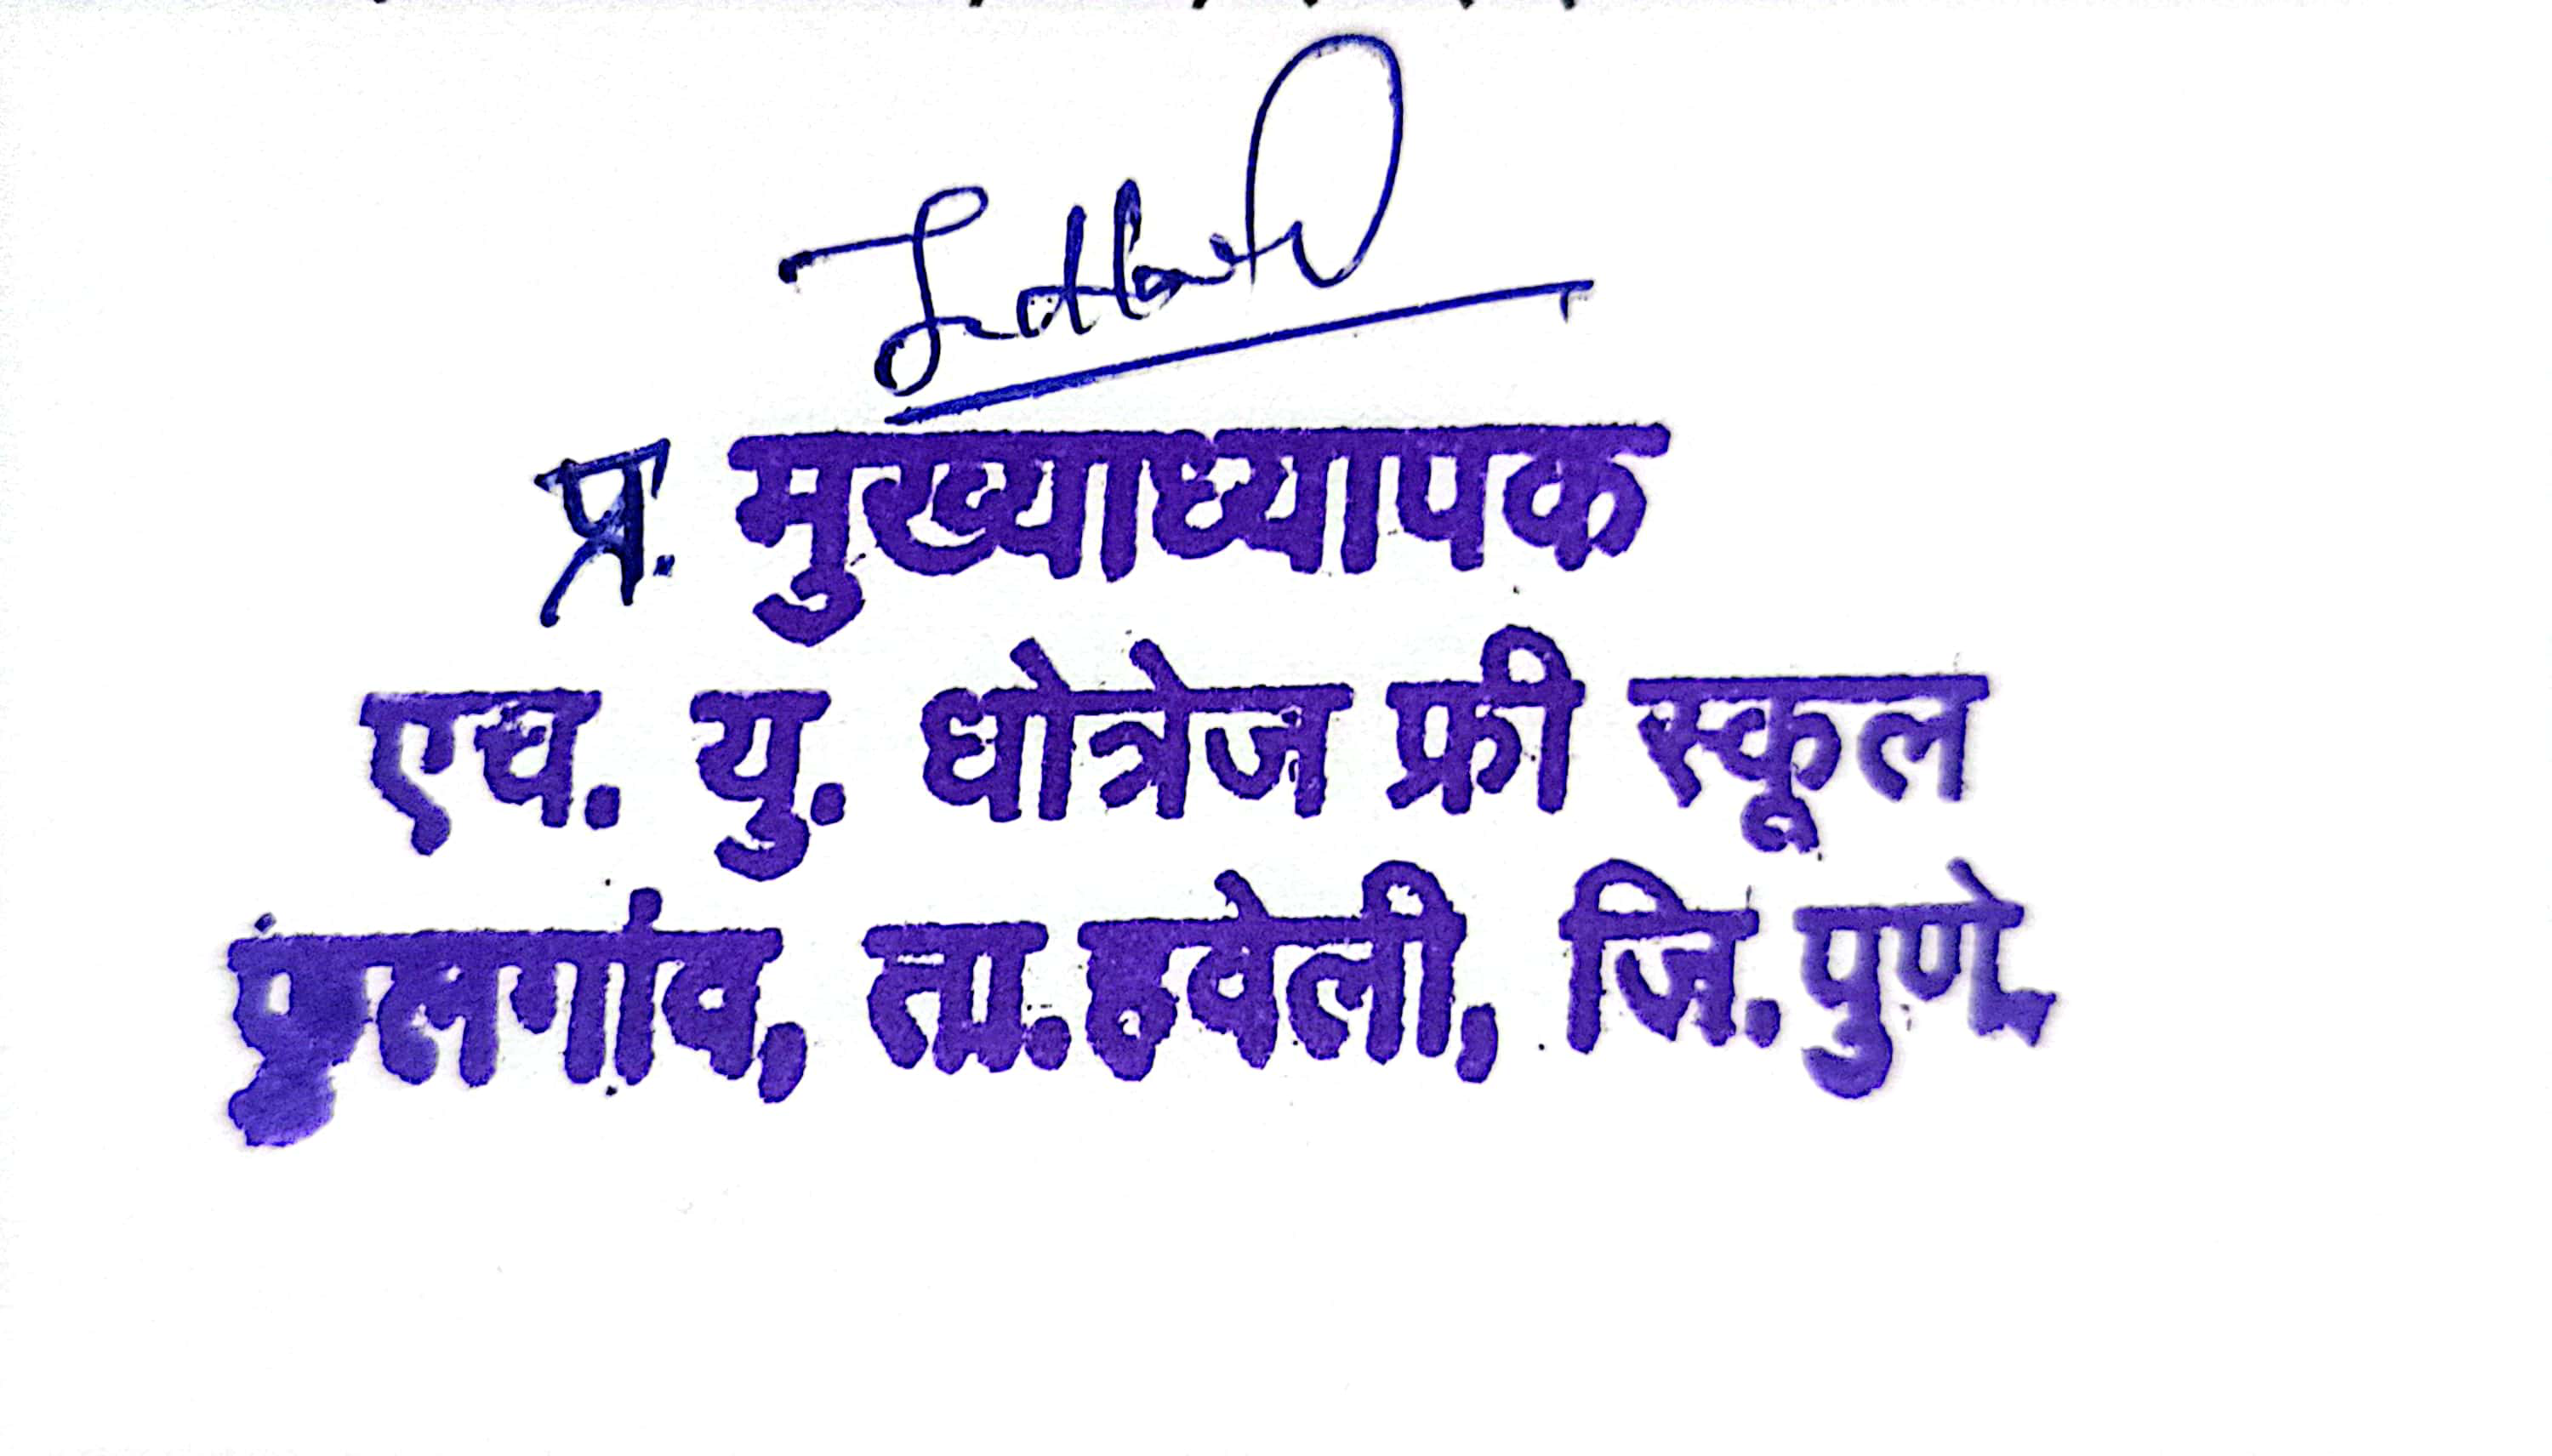 प्र. मुख्याध्यापक
एच. यु. धोत्रेज फ्री स्कूल
फुलगांव, ता.हवेली, जि.पुणे.